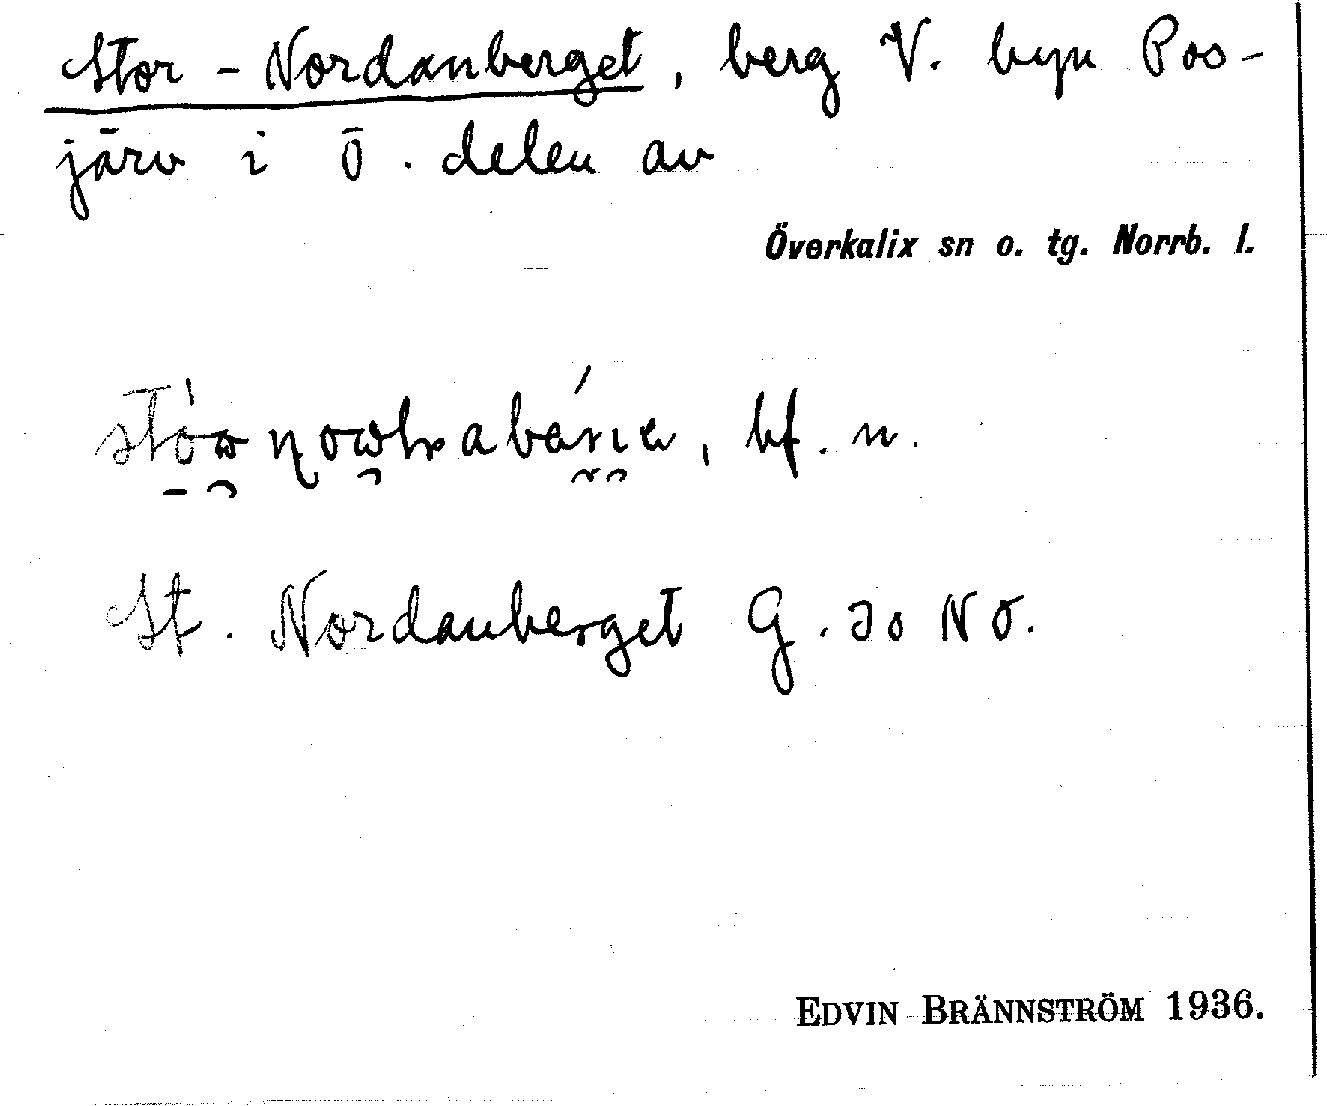 Stor-Nordanberget, berg V. byn Pos-
järv i Ö. delen av
Överkalix sn o. tg. Norrb. l.
bf. n.
St. Nordanberget G. 30 NO.
EDVIN BRÄNNSTRÖM 1936.